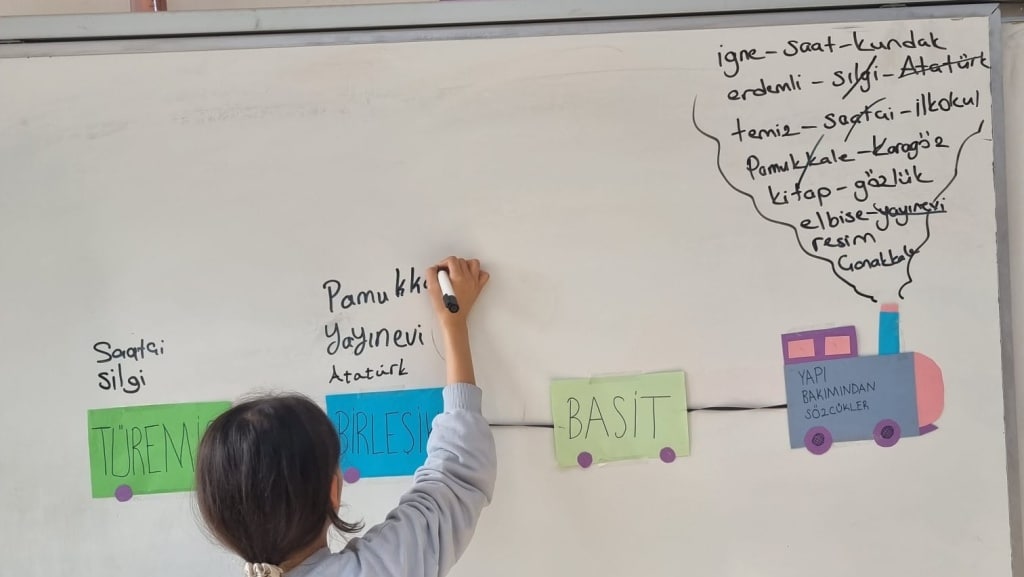 igne - saat - kundak
erdemli - silgi - Atatürk
temiz - saatçi - ilkokul
Pamukkale - Karagöz
kitap - gözlük
elbise - yayınevi
resim
Çanakkale
Pamukka
Yayınevi
Atatürk
Saatçi
Silgi
TÜREMİ
BİRLEŞİ
BASİT
YAPI
BAKIMINDAN
SÖZCÜKLER